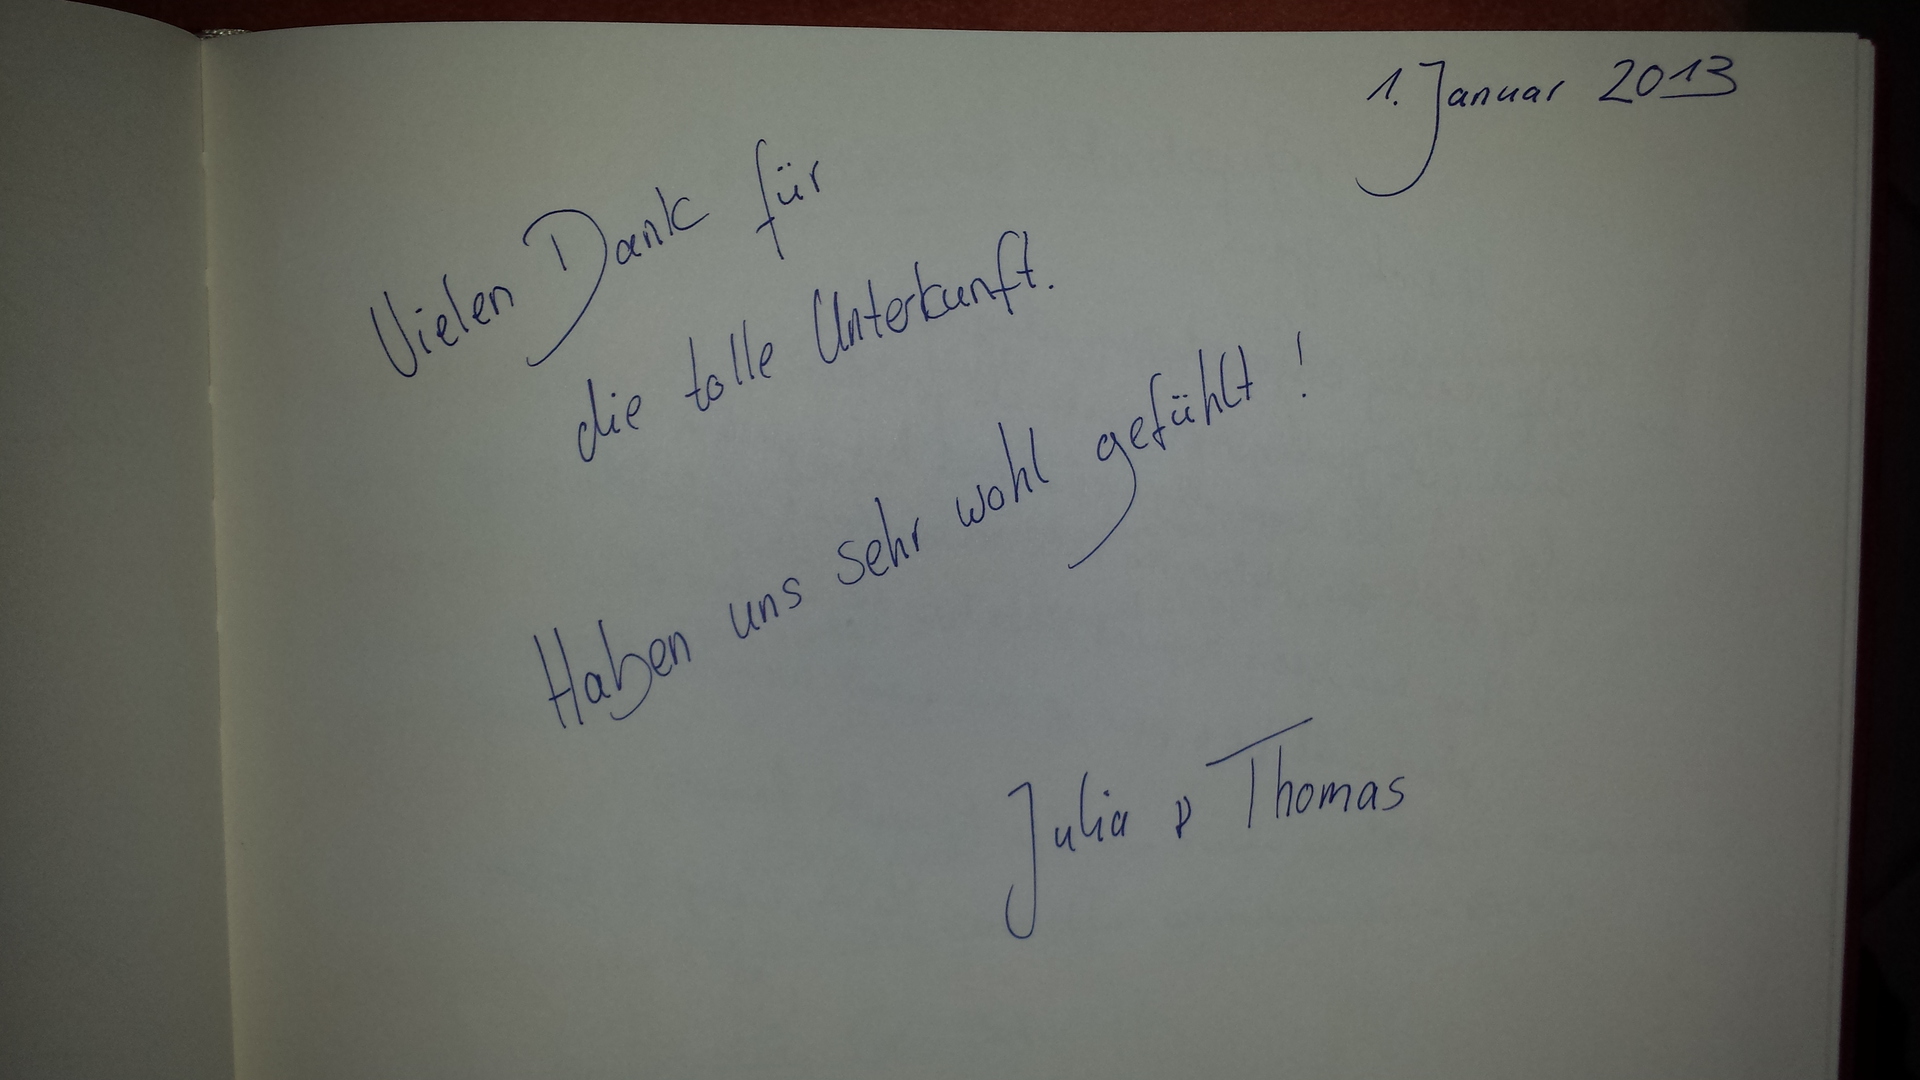 1. Januar 2013
Vielen Dank für
die tolle Unterkunft.
Haben uns sehr wohl gefühlt!
Julia & Thomas